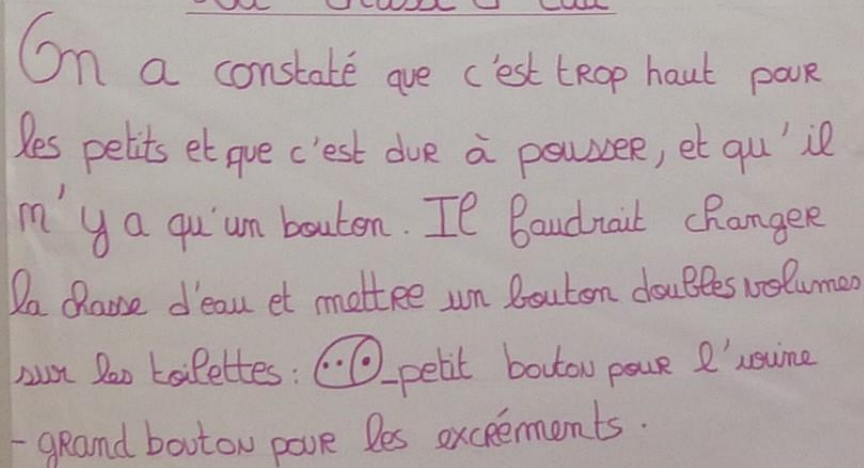 On a constaté que c'est trop haut pour
les petits et que c'est dur à pousser, et qu'il
n'y a qu'un bouton. Il faudrait changer
la chasse d'eau et mettre un bouton doubles volumes
sur les toilettes: - petit bouton pour l'urine
- grand bouton pour les excréments.